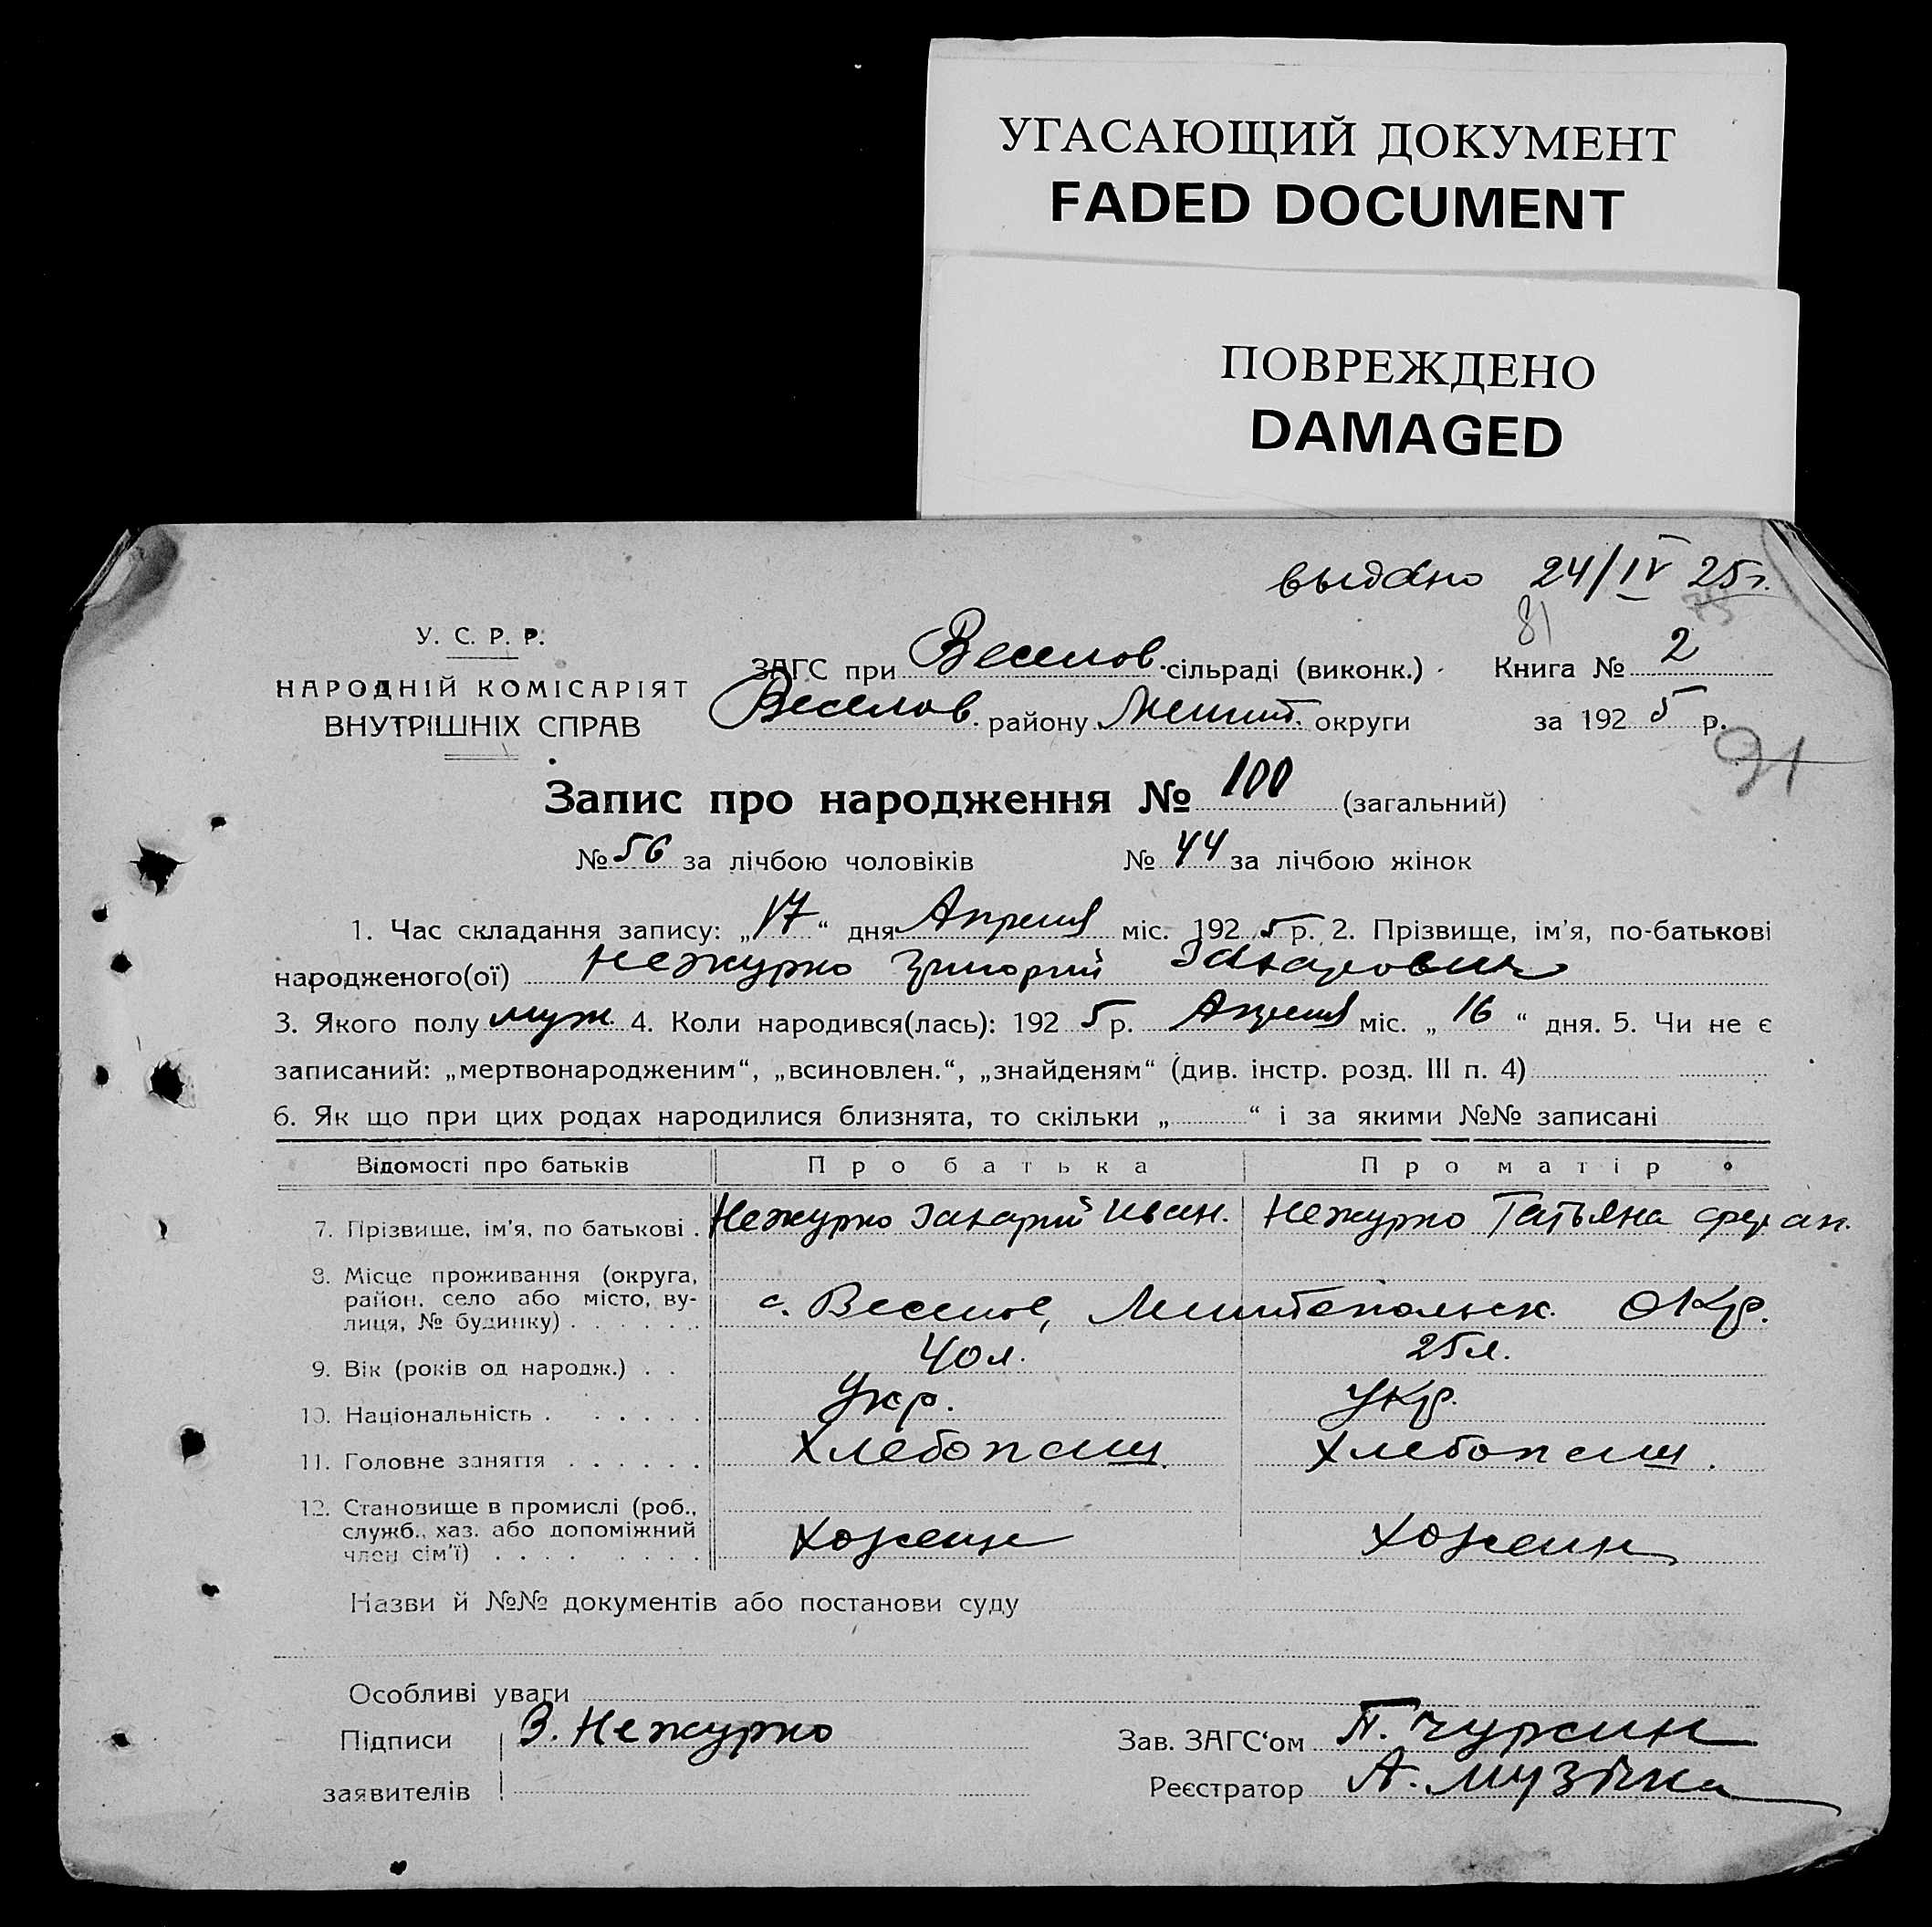 УГАСАЮЩИЙ ДОКУМЕНТ
FADED DOCUMENT
ПОВРЕЖДЕНО
DAMAGED
выдано 24/IV 25г.
81
У. С. Р. Р.
НАРОДНІЙ КОМІСАРІЯТ
ВНУТРІШНІХ СПРАВ
ЗАГС при Веселов. сільраді (виконк.) Книга № 2
Веселов. району Мелит. округи за 1925 р.
91
Запис про народження № 100 (загальний)
№ 56 за лічбою чоловіків № 44 за лічбою жінок
1. Час складання запису: „17“ дня Апреля міс. 1925 р. 2. Прізвище, ім’я, по-батькові
народженого(ої) Нежурко Григорий Захарович
3. Якого полу муж. 4. Коли народився(лась): 1925 р. Апреля міс. „16“ дня. 5. Чи не є
записаний: „мертвонародженим“, „всиновлен.“, „знайденям“ (див. інстр. розд. III п. 4)
6. Як що при цих родах народилися близнята, то скільки „ “ і за якими №№ записані
Відомості про батьків Про батька Про матір
7. Прізвище, ім’я, по батькові . Нежурко Захарий Иван. Нежурко Татьяна
8. Місце проживання (округа,
район, село або місто, ву-
лиця, № будинку) . . . . . . с. Веселое, Мелитопольск. Окр.
9. Вік (років од народж.) . . 40 л. 25 л.
10. Національність . . . . . . Укр. Укр.
11. Головне заняття . . . . . . Хлебопаш. Хлебопаш.
12. Становище в промислі (роб.,
служб., хаз. або допоміжний
член сім’ї) . . . . . . . .
Назви й №№ документів або постанови суду
Особливі уваги
Підписи З. Нежурко Зав. ЗАГС‘ом П. Чурсин
заявителів Реєстратор А. Музічка